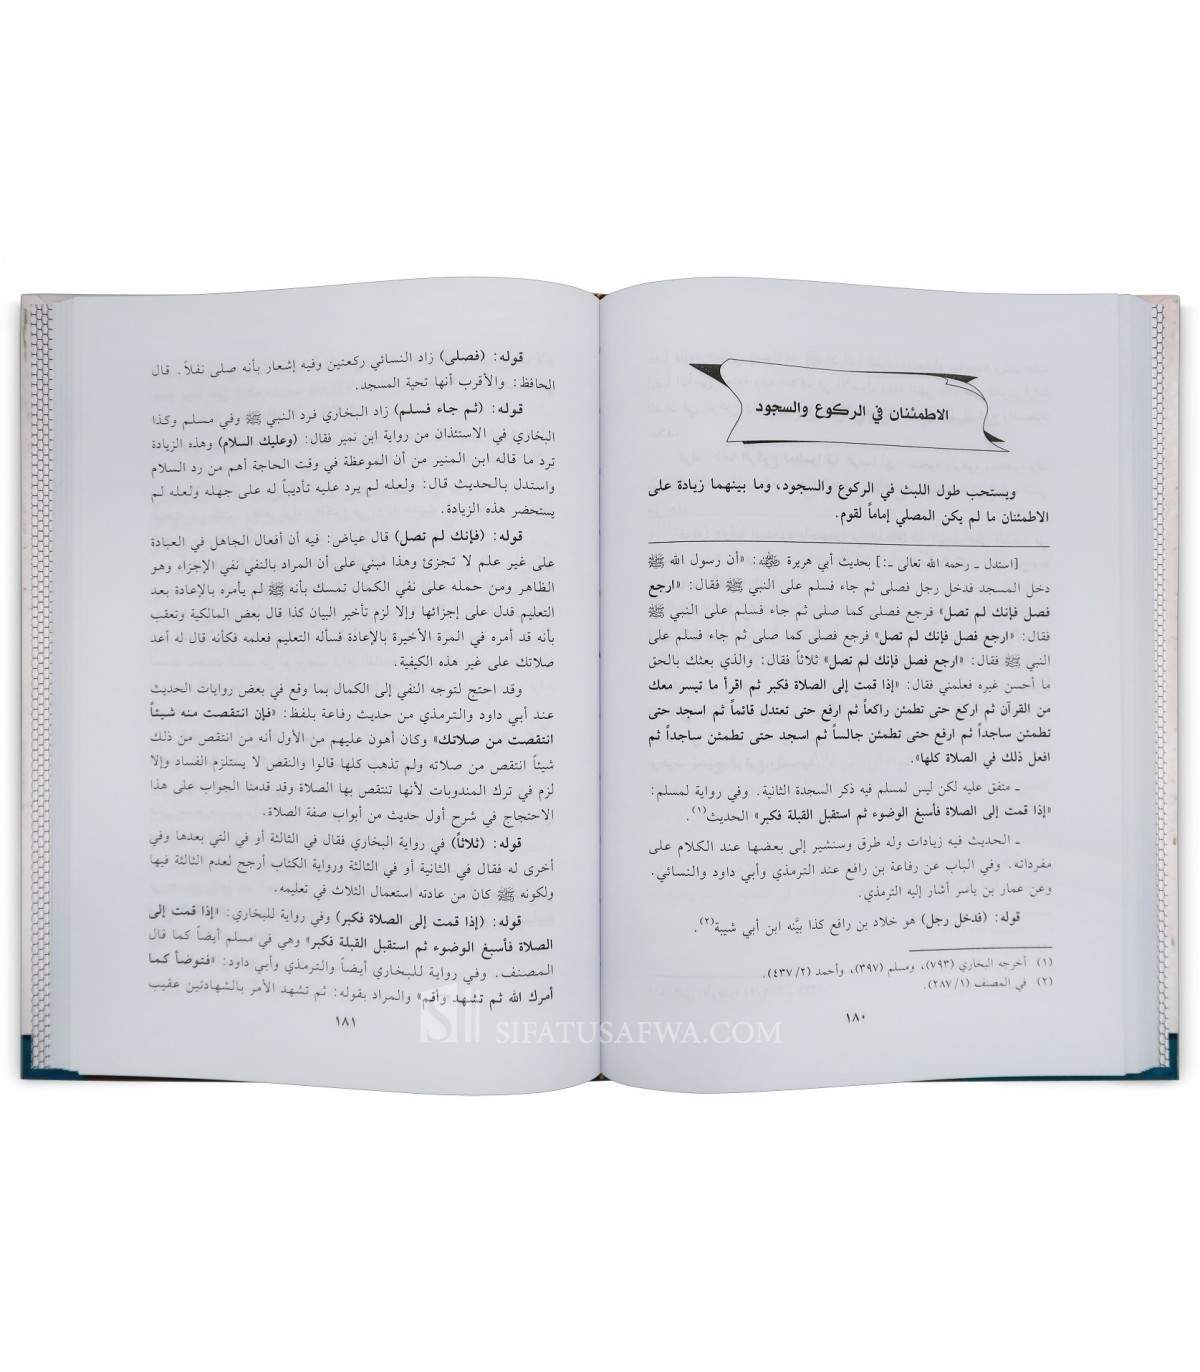 الاطمئنان في الركوع والسجود
ويستحب طول اللبث في الركوع والسجود، وما بينهما زيادة على
الاطمئنان ما لم يكن المصلي إماماً لقوم.
[استدل ـ رحمه الله تعالى ـ:] بحديث أبي هريرة رضي الله عنه: «أن رسول الله ﷺ
دخل المسجد فدخل رجل فصلى ثم جاء فسلم على النبي ﷺ فقال: «ارجع
فصل فإنك لم تصل» فرجع فصلى كما صلى ثم جاء فسلم على النبي ﷺ
فقال: «ارجع فصل فإنك لم تصل» فرجع فصلى كما صلى ثم جاء فسلم على
النبي ﷺ فقال: «ارجع فصل فإنك لم تصل» ثلاثاً فقال: والذي بعثك بالحق
ما أحسن غيره فعلمني فقال: «إذا قمت إلى الصلاة فكبر ثم اقرأ ما تيسر معك
من القرآن ثم اركع حتى تطمئن راكعاً ثم ارفع حتى تعتدل قائماً ثم اسجد حتى
تطمئن ساجداً ثم ارفع حتى تطمئن جالساً ثم اسجد حتى تطمئن ساجداً ثم
افعل ذلك في الصلاة كلها».
ـ متفق عليه لكن ليس لمسلم فيه ذكر السجدة الثانية. وفي رواية لمسلم:
«إذا قمت إلى الصلاة فأسبغ الوضوء ثم استقبل القبلة فكبر» الحديث(١).
ـ الحديث فيه زيادات وله طرق وسنشير إلى بعضها عند الكلام على
مفرداته. وفي الباب عن رفاعة بن رافع عند الترمذي وأبي داود والنسائي.
وعن عمار بن ياسر أشار إليه الترمذي.
قوله: (فدخل رجل) هو خلاد بن رافع كذا بيَّنه ابن أبي شيبة(٢).
(١) أخرجه البخاري (٧٩٣)، ومسلم (٣٩٧)، وأحمد (٤٣٧/٢).
(٢) في المصنف (٢٨٧/١).
١٨٠
قوله: (فصلى) زاد النسائي ركعتين وفيه إشعار بأنه صلى نفلاً. قال
الحافظ: والأقرب أنها تحية المسجد.
قوله: (ثم جاء فسلم) زاد البخاري فرد النبي ﷺ وفي مسلم وكذا
البخاري في الاستئذان من رواية ابن نمير فقال: (وعليك السلام) وهذه الزيادة
ترد ما قاله ابن المنير من أن الموعظة في وقت الحاجة أهم من رد السلام
واستدل بالحديث قال: ولعله لم يرد عليه تأديباً له على جهله ولعله لم
يستحضر هذه الزيادة.
قوله: (فإنك لم تصل) قال عياض: فيه أن أفعال الجاهل في العبادة
على غير علم لا تجزئ وهذا مبني على أن المراد بالنفي نفي الإجزاء وهو
الظاهر ومن حمله على نفي الكمال تمسك بأنه ﷺ لم يأمره بالإعادة بعد
التعليم فدل على إجزائها وإلا لزم تأخير البيان كذا قال بعض المالكية وتعقب
بأنه قد أمره في المرة الأخيرة بالإعادة فسأله التعليم فعلمه فكأنه قال له أعد
صلاتك على غير هذه الكيفية.
وقد احتج لتوجه النفي إلى الكمال بما وقع في بعض روايات الحديث
عند أبي داود والترمذي من حديث رفاعة بلفظ: «فإن انتقصت منه شيئاً
انتقصت من صلاتك» وكان أهون عليهم من الأول أنه من انتقص من ذلك
شيئاً انتقص من صلاته ولم تذهب كلها قالوا والنقص لا يستلزم الفساد وإلا
لزم في ترك المندوبات لأنها تنتقص بها الصلاة وقد قدمنا الجواب على هذا
الاحتجاج في شرح أول حديث من أبواب صفة الصلاة.
قوله: (ثلاثاً) في رواية البخاري فقال في الثالثة أو في التي بعدها وفي
أخرى له فقال في الثانية أو في الثالثة ورواية الكتاب أرجح لعدم الثالثة فيها
ولكونه ﷺ كان من عادته استعمال الثلاث في تعليمه.
قوله: (إذا قمت إلى الصلاة فكبر) وفي رواية للبخاري: «إذا قمت إلى
الصلاة فأسبغ الوضوء ثم استقبل القبلة فكبر» وهي في مسلم أيضاً كما قال
المصنف. وفي رواية للبخاري أيضاً والترمذي وأبي داود: «فتوضأ كما
أمرك الله ثم تشهد وأقم» والمراد بقوله: ثم تشهد الأمر بالشهادتين عقيب
١٨١
SIFATUSAFWA.COM